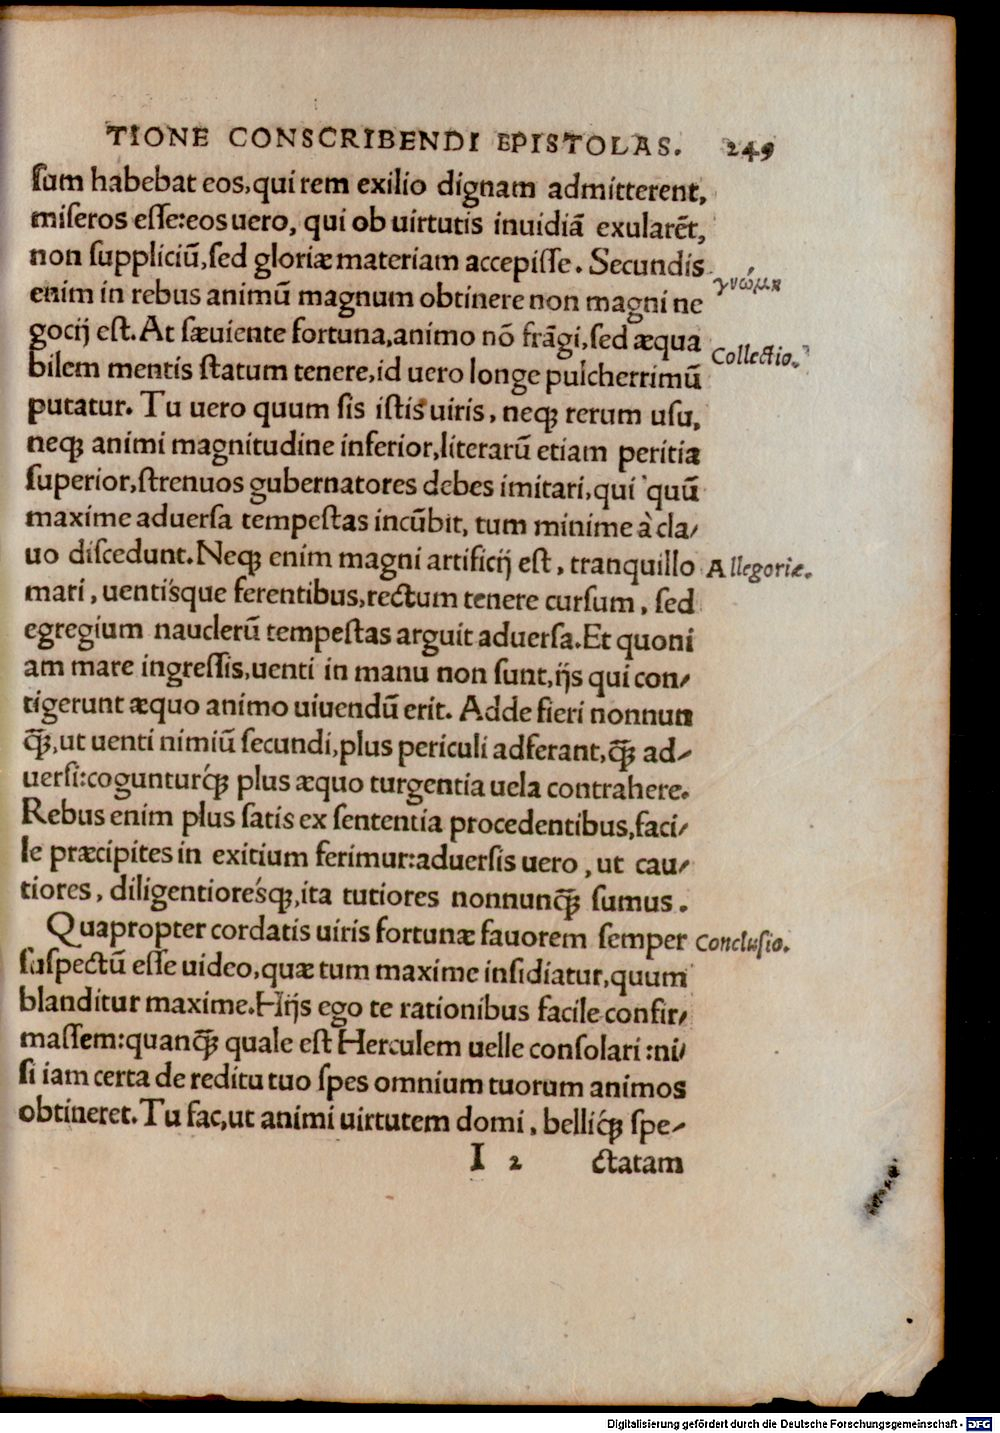 TIONE CONSCRIBENDI EPISTOLAS. 249
sum habebat eos, qui rem exilio dignam admitterent,
miseros esse: eos uero, qui ob uirtutis inuidiã exularẽt,
non suppliciũ, sed gloriæ materiam accepisse. Secundis
γνώμη
enim in rebus animũ magnum obtinere non magni ne
gocij est. At sæuiente fortuna, animo nõ frãgi, sed æqua
Collectio.
bilem mentis statum tenere, id uero longe pulcherrimũ
putatur. Tu uero quum sis istis uiris, neqꝫ rerum usu,
neqꝫ animi magnitudine inferior, literarũ etiam peritia
superior, strenuos gubernatores debes imitari, qui quũ
maxime aduersa tempestas incũbit, tum minime à cla/
uo discedunt. Neqꝫ enim magni artificij est, tranquillo
Allegoriæ.
mari, uentísque ferentibus, rectum tenere cursum, sed
egregium nauclerũ tempestas arguit aduersa. Et quoni
am mare ingressis, uenti in manu non sunt, ijs qui con/
tigerunt æquo animo uiuendũ erit. Adde fieri nonnun
q̃ꝫ, ut uenti nimiũ secundi, plus periculi adferant, q̃ꝫ ad/
uersi: cogunturq́ꝫ plus æquo turgentia uela contrahere.
Rebus enim plus satis ex sententia procedentibus, faci/
le præcipites in exitium ferimur: aduersis uero, ut cau/
tiores, diligentioresq́ꝫ, ita tutiores nonnunq̃ꝫ sumus.
Quapropter cordatis uiris fortunæ fauorem semper
Conclusio.
suspectũ esse uideo, quæ tum maxime insidiatur, quum
blanditur maxime. Hijs ego te rationibus facile confir/
massem: quanq̃ꝫ quale est Herculem uelle consolari: ni/
si iam certa de reditu tuo spes omnium tuorum animos
obtineret. Tu fac, ut animi uirtutem domi, belliq́ꝫ spe/
I 2 ctatam
Digitalisierung gefördert durch die Deutsche Forschungsgemeinschaft - DFG